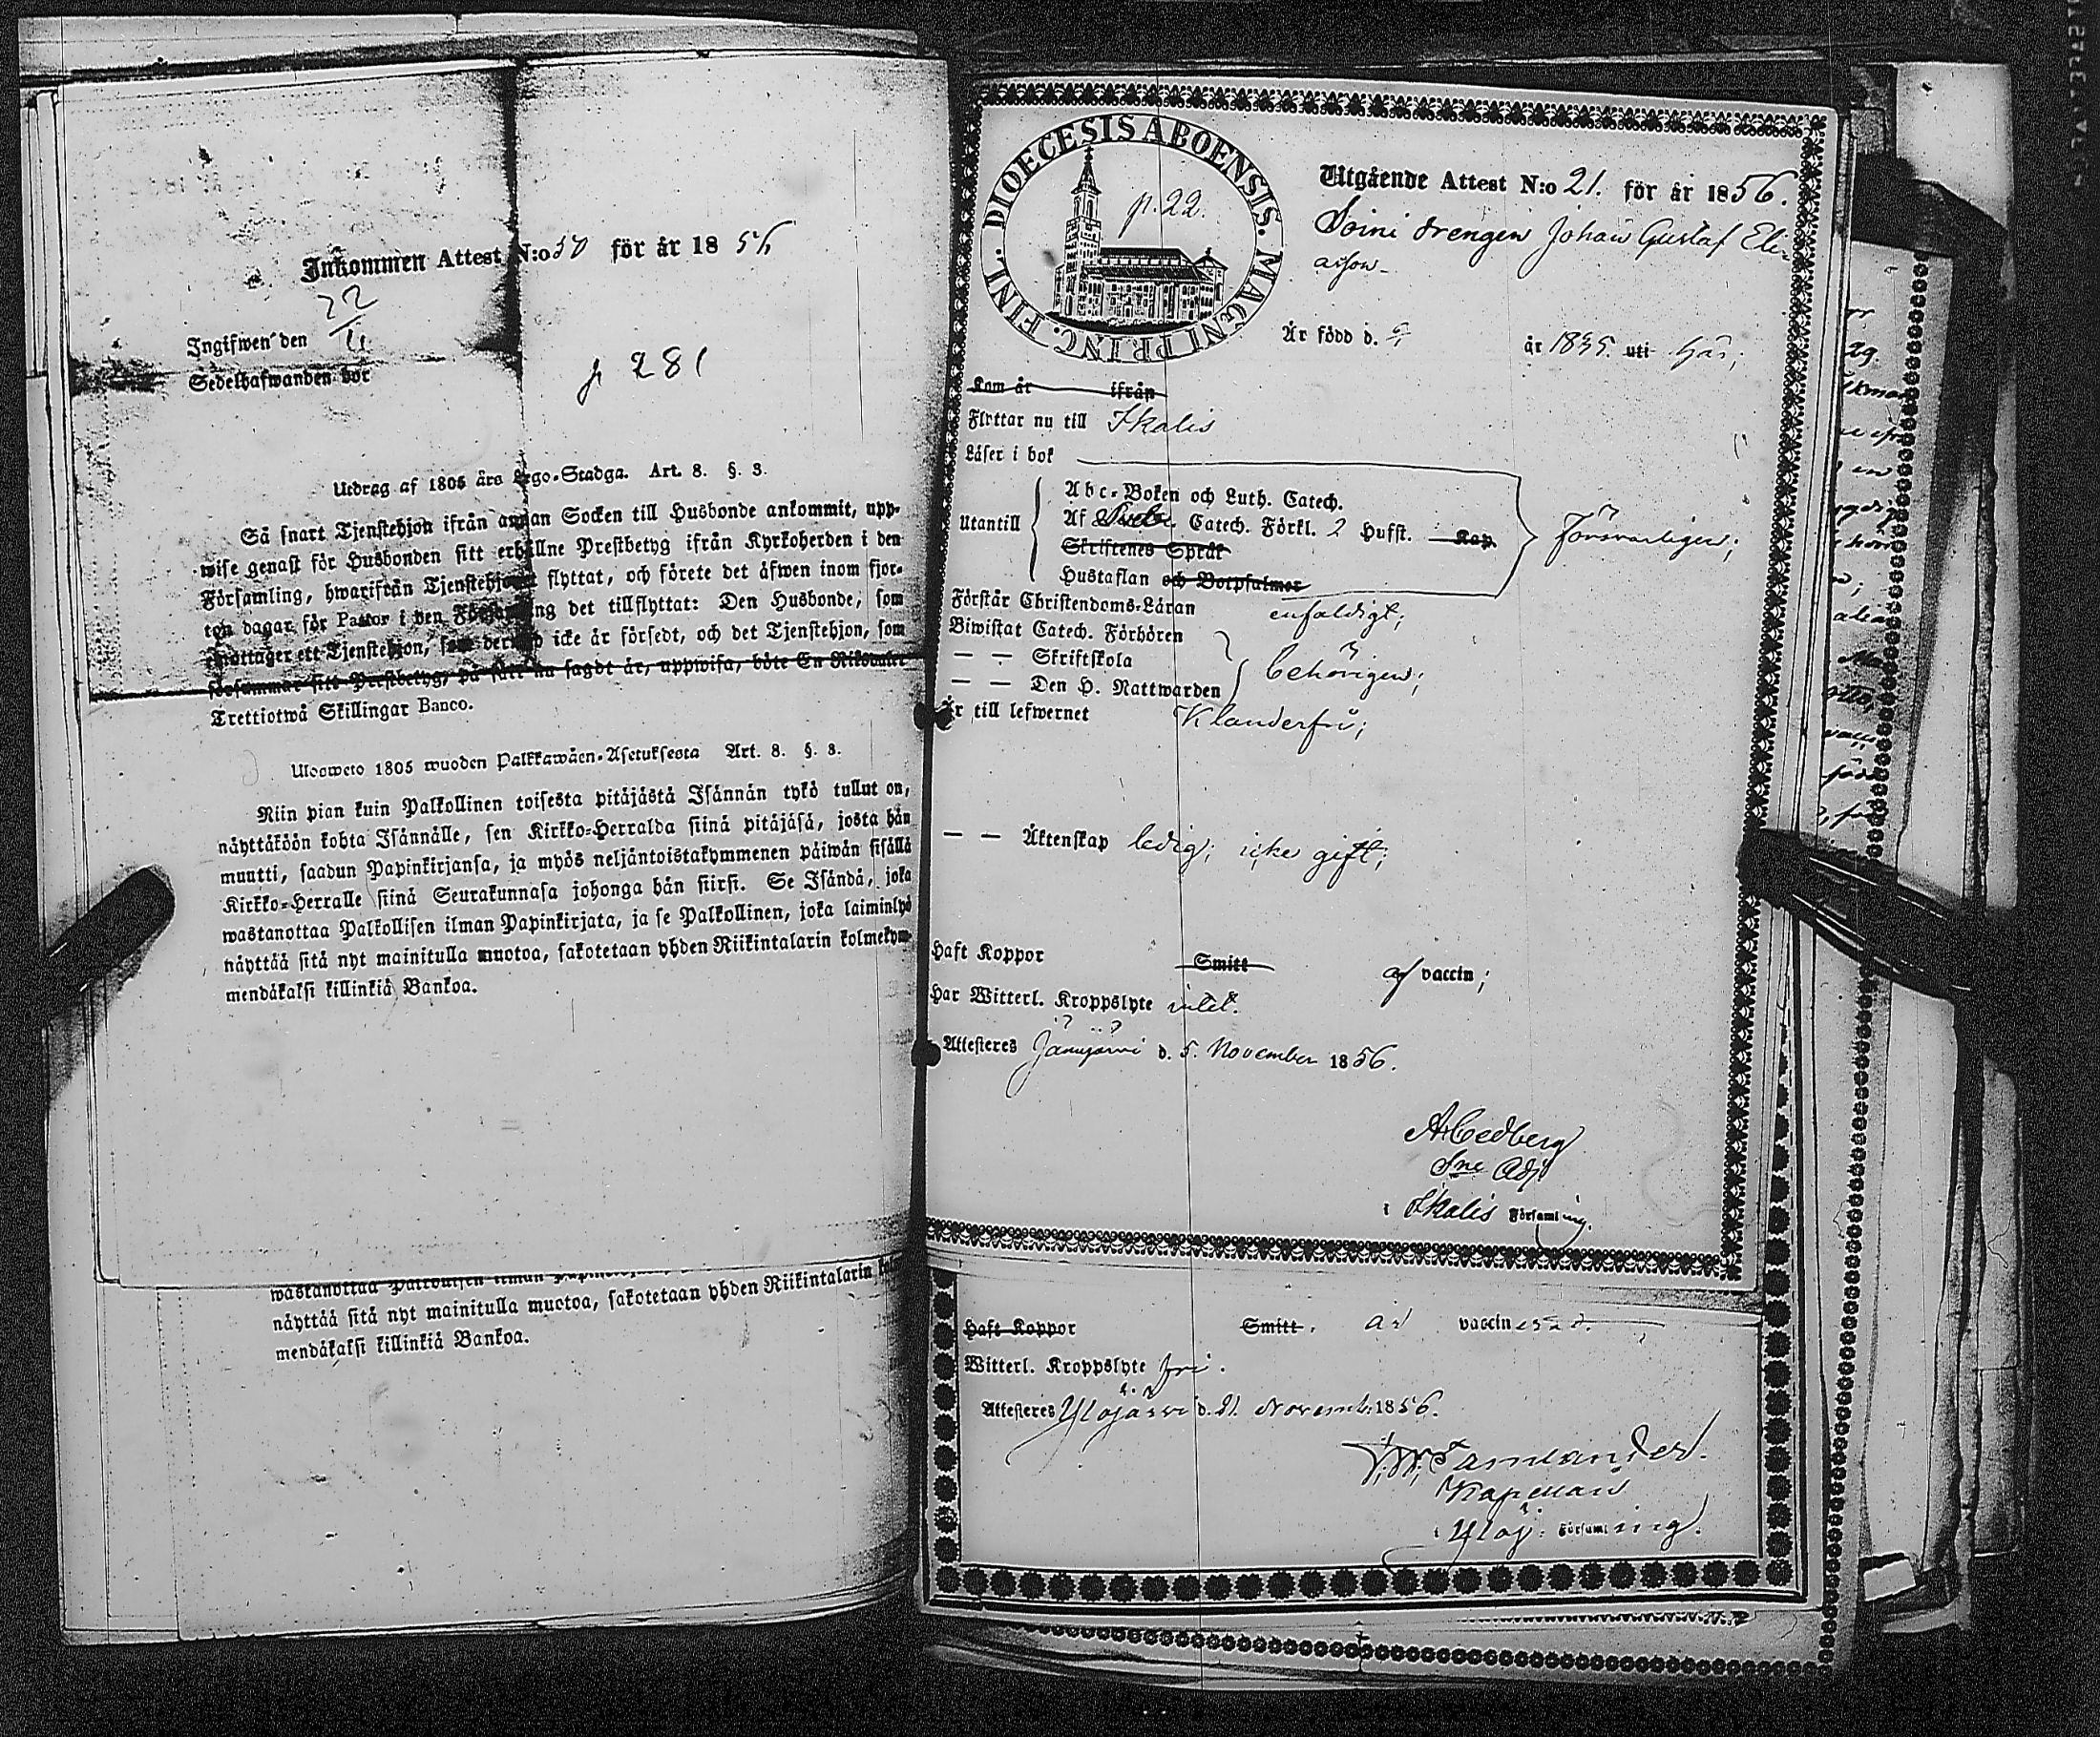 Inkommen Attest N:o 50 för år 18 56
22
11
Ingifwen den
Sedelhafwanden bor
p 281
Utdrag af 1805 års Lego-Stadga. Art. 8. §. 8.
Så snart Tjenstehjon ifrån annan Socken till Husbonde ankommit, upp-
wise genast för Husbonden sitt erhållne Prestbetyg ifrån Kyrkoherden i den
Församling, hwarifrån Tjenstehjonet flyttat, och förete det äfwen inom fjor-
ton dagar för Pastor i den Församling det tillflyttat: Den Husbonde, som
emottager ett Tjenstehjon, som dermed icke är försedt, och det Tjenstehjon, som
försummar sitt Prestbetyg, på sätt nu sagdt är, uppwisa, böte En Riksdaler
Trettiotwå Skillingar Banco.
Ulosweto 1805 wuoden Palkkawäen-Asetuksesta Art. 8. §. 8.
Niin pian kuin Palkollinen toisesta pitäjästä Isännän tykö tullut on,
näyttäköön kohta Isännälle, sen Kirkko-Herralda siinä pitäjäsä, josta hän
muutti, saadun Papinkirjansa, ja myös neljäntoistakymmenen päiwän sisällä
Kirkko-Herralle siinä Seurakunnasa johonga hän siirsi. Se Isändä, joka
wastanottaa Palkollisen ilman Papinkirjata, ja se Palkollinen, joka laiminlyö
näyttää sitä nyt mainitulla muotoa, sakotetaan yhden Riikintalarin kolmekym-
mendäkaksi killinkiä Bankoa.
wastanottaa Palkollisen ilman
näyttää sitä nyt mainitulla muotoa, sakotetaan yhden Riikintalarin kol
mendäkaksi killinkiä Bankoa.
DIOECESIS ABOENSIS. MAGNI PRINC. FINL.
p. 22.
Utgående Attest N:o 21. för år 1856.
Soini drengen Johan Gustaf Eli-
asson
Är född d. år 1835. uti här;
Kom år ifrån
Flyttar nu till Ikalis
Läser i bok
Utantill
Abc-Boken och Luth. Catech.
Af Catech. Förkl. 2 Hufst. Kap.
Skriftenes Språk
Hustaflan och Botpsalmer
Försvarligen;
Förstår Christendoms-Läran enfaldigt;
Biwistat Catech. Förhören
— — Skriftskola
— — Den H. Nattwarden
behörigen;
Är till lefwernet Klanderfri;
— — Äktenskap ledig; icke gift;
Haft Koppor Smitt af vaccin;
Har Witterl. Kroppslyte intet.
Attesteres Jämijärvi d. 5. November 1856.
A Cedberg
Sne Adj
i Ikalis Församling.
Haft Koppor Smitt. är vaccinerad.
Witterl. Kroppslyte fri.
Attesteres Ylöjärwi d. 21. Novemb: 1856.
Kapellan
i Ylöj: Församling.